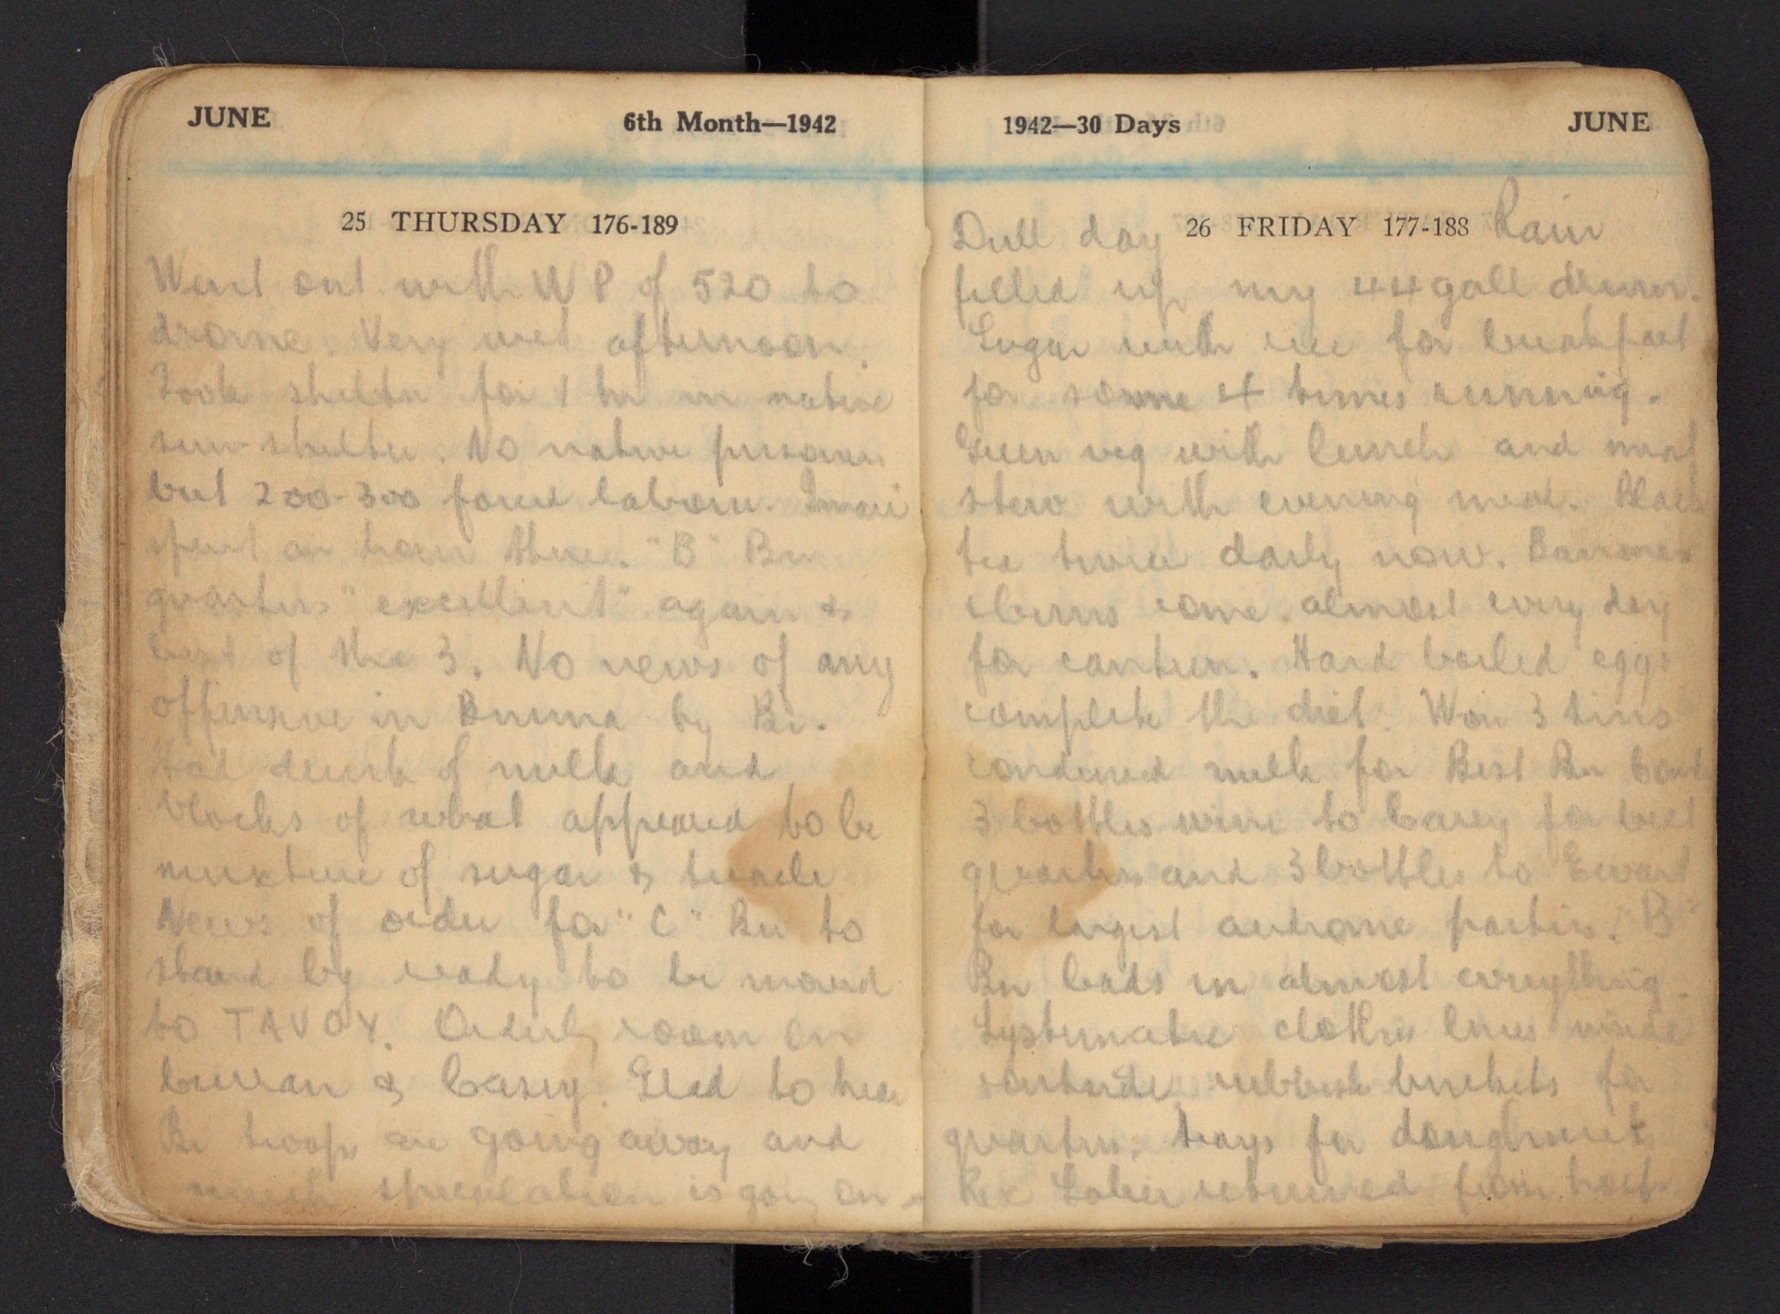 JUNE 6th Month—1942
25 THURSDAY 176-189
Went out with W P of 520 to
drome. Very wet afternoon.
Took shelter for 1 hr in native
sun-shelter. No native prisoners
but 200-300 forced labour. Imai
spent an hour there. "B" Bn
quarters "excellent" again &
best of the 3. No news of any
offensive in Burma by Br.
Had drink of milk and
blocks of what appeared to be
mixture of sugar & treacle.
News of order for "C" Bn to
stand by ready to be moved
to TAVOY. Orderly room on
& Casey. Glad to hear
Br troops are going away and
much speculation is going on
1942—30 Days JUNE
26 FRIDAY 177-188
Dull day Rain
filled up my 44 gall drum.
Sugar with rice for breakfast
for some 4 times running.
Green veg with lunch and meat
stew with evening meal. Black
tea twice daily now. Burmese
come almost every day
for canteen. Hard boiled eggs
complete the diet. Won 3 tins
condensed milk for Best Bn
3 bottles wine to Casey for best
quarters and 3 bottles to Ewart
for largest aerodrome parties. "B"
Bn leads in almost everything.
Systematic clothes lines inside
outside, rubbish buckets for
quarters, trays for doughnuts
Rex returned from hosp